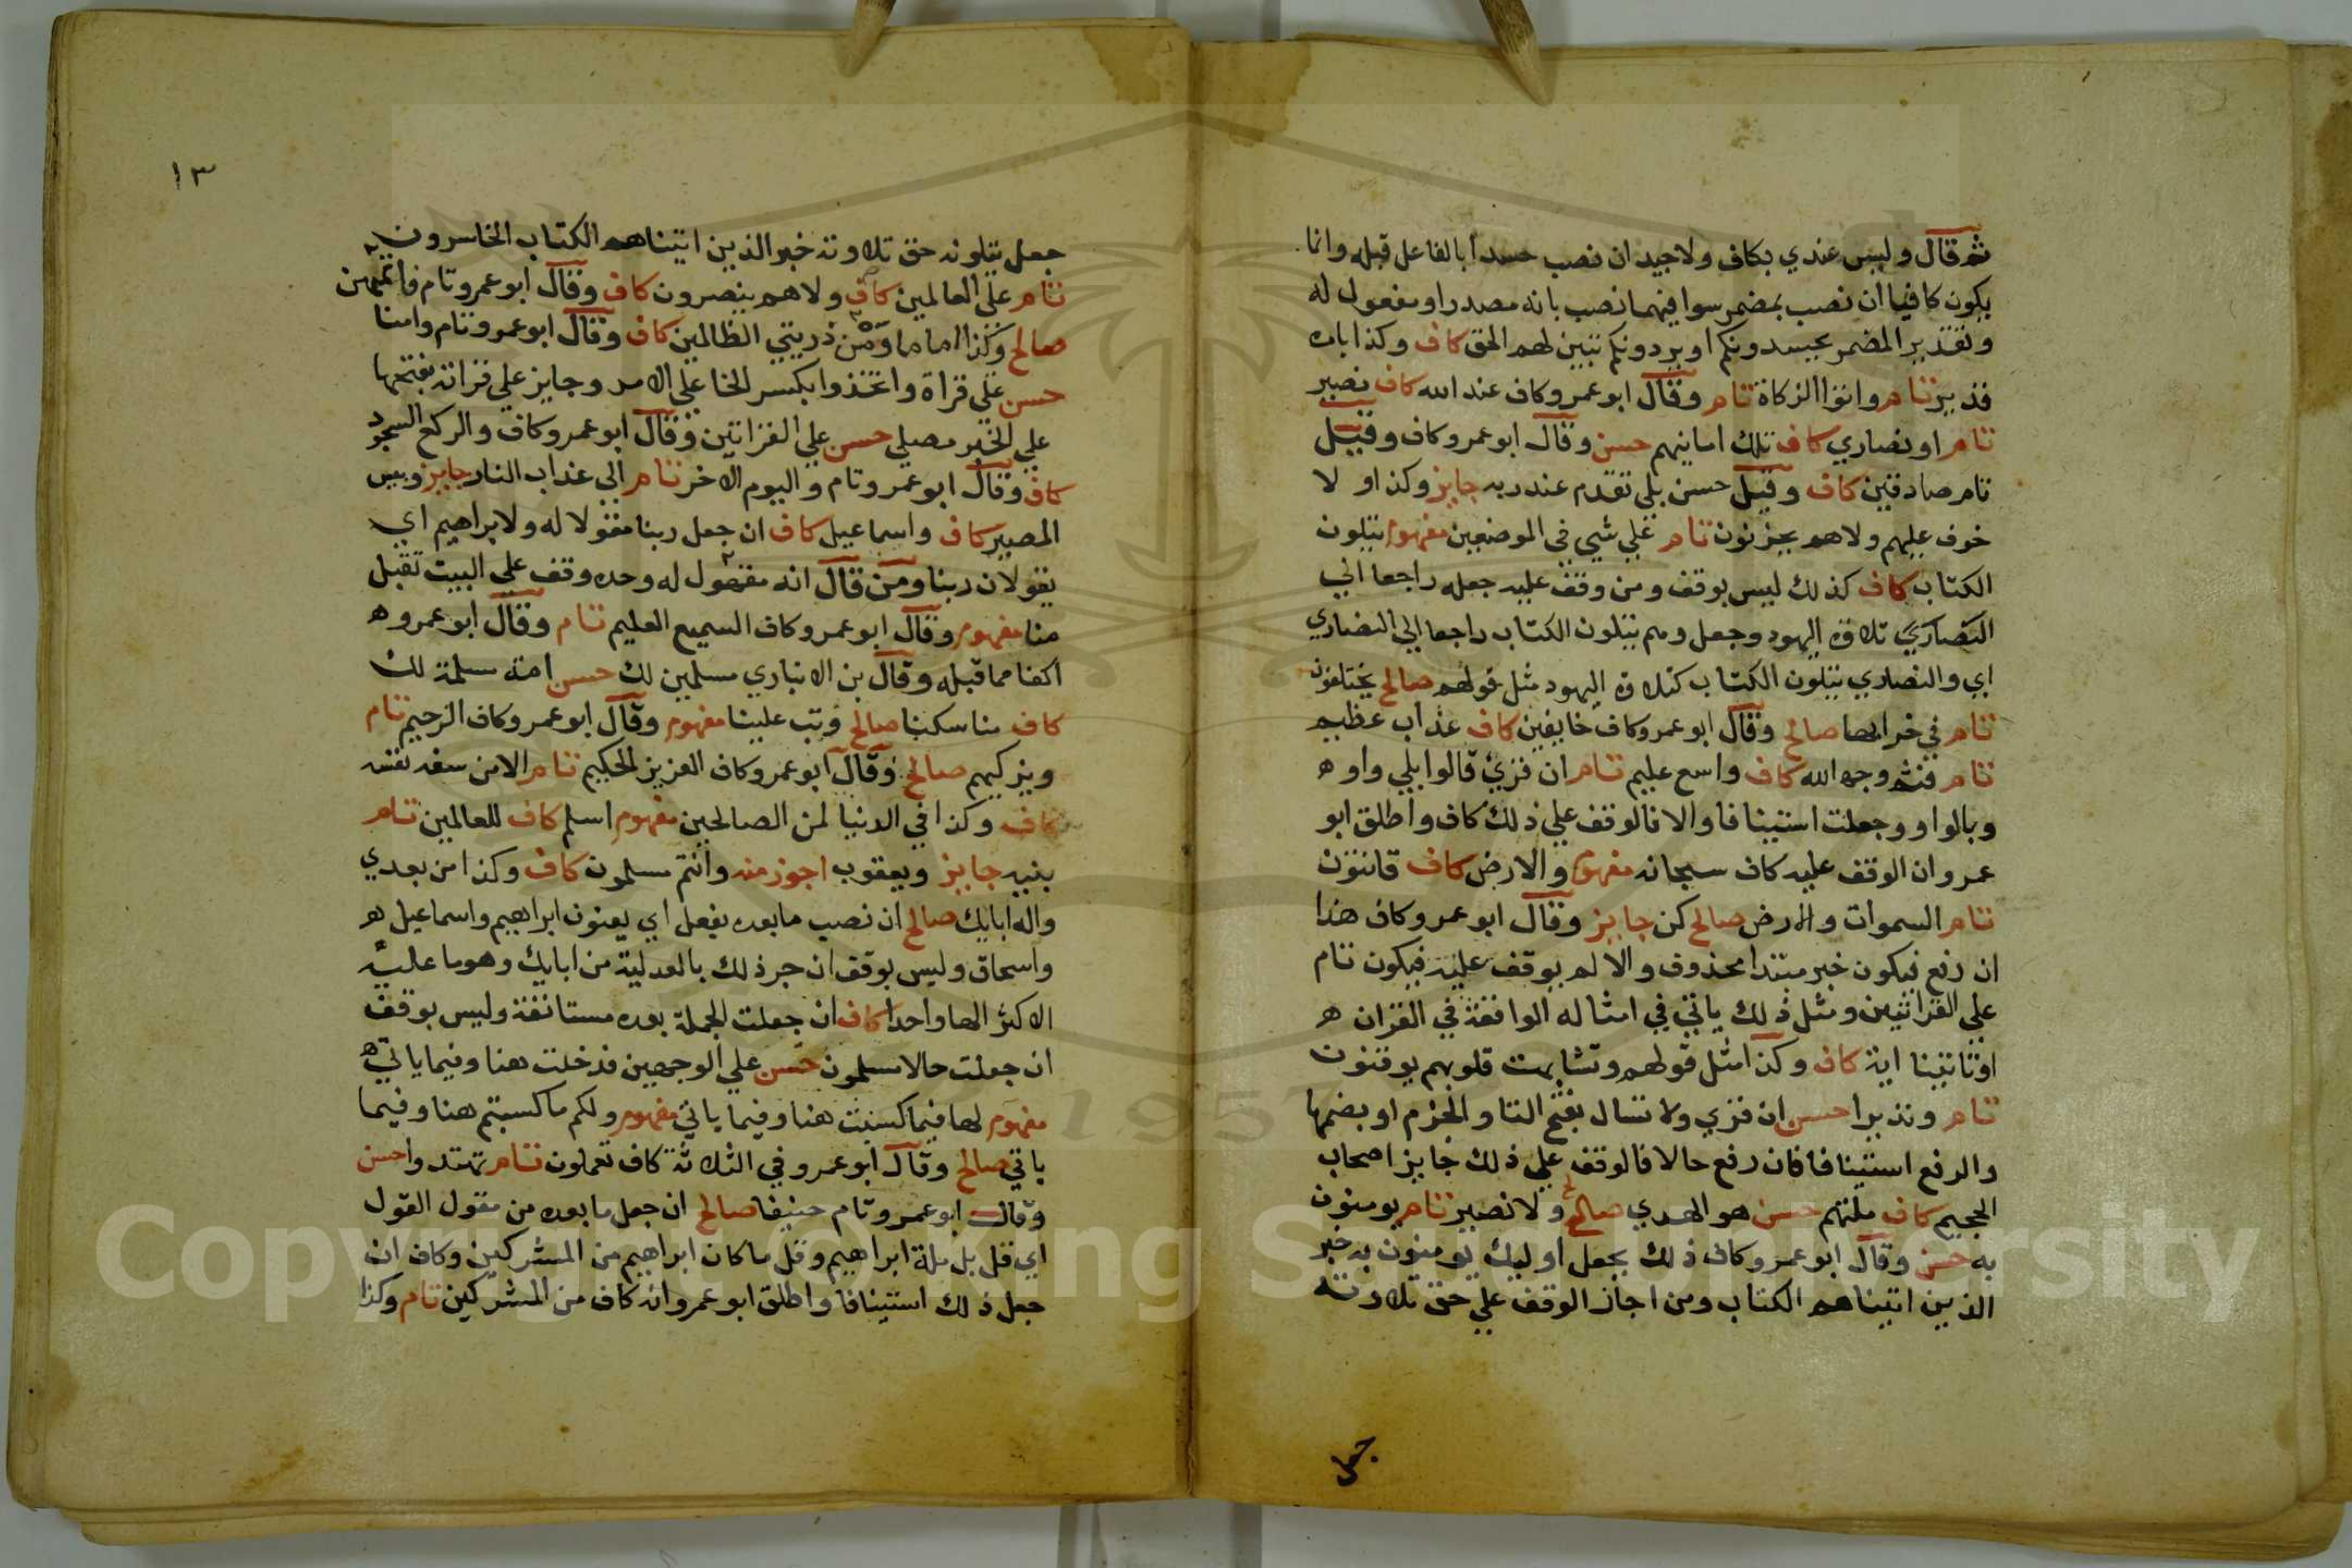 ثم قال وليس عندي بكاف ولا جيد ان نصب حسدا بالفاعل قبله وانما
يكون كافيا ان نصب بمضمر سوا فيهما نصب بانه مصدر او مفعول له
وتقدير المضمر يحسدونكم او يردونكم تبين لهم الحق كاف وكذا بامره
قدير تام واتوا الزكاة تام وقال ابو عمرو كاف عند الله كاف بصير
تام او نصاري كاف تلك امانيهم حسن وقال ابو عمرو كاف وقيل
تام صادقين كاف وقيل حسن بلي تقدم عند ربه جايز وكذا ولا
خوف عليهم ولا هم يحزنون تام علي شي في الموضعين مفهوم يتلون
الكتاب كاف كذلك ليس بوقف ومن وقف عليه جعله راجعا الي
النصاري تلاوة اليهود وجعل وهم يتلون الكتاب راجعا الي النصاري
اي والنصاري يتلون الكتاب كتلاوة اليهود مثل قولهم صالح يختلفون
تام في خرابها صالح وقال ابو عمرو كاف خايفين كاف عذاب عظيم
تام فثم وجه الله كاف واسع عليم تام ان قري قالوا بلي واو ه
وبالواو وجعلت استينافا والا فالوقف علي ذلك كاف واطلق ابو
عمرو ان الوقف عليه كاف سبحانه مفهوم والارض كاف قانتون
تام السموات والارض صالح كن جايز وقال ابو عمرو كاف هذا
ان رفع فيكون خبر مبتدا محذوف والا لم يوقف عليه فيكون تام
علي القراتين ومثل ذلك ياتي في امثاله الواقعة في القران ه
او تاتينا اية كاف وكذا مثل قولهم وتشابهت قلوبهم يوقنون
تام ونذيرا حسن ان قري ولا تسال بفتح التا والجزم او بضمها
والرفع استينافا فان رفع حالا فالوقف علي ذلك جايز اصحاب
الجحيم كاف ملتهم حسن هو الهدي صالح ولا نصير تام يومنون
به حسن وقال ابو عمرو كاف ذلك بجعل اوليك يومنون به خبر
الذين اتيناهم الكتاب ومن اجاز الوقف علي حق تلاوته
جعل
١٣
جعل يتلونه حق تلاوته خبر الذين اتيناهم الكتاب الخاسرون
تام علي العالمين كاف ولا هم ينصرون كاف وقال ابو عمرو تام فاتمهن
صالح وكذا اماما ومن ذريتي الظالمين كاف وقال ابو عمرو تام وامنا
حسن علي قراة واتخذوا بكسر الخا علي الامر وجايز علي قراته بفتحها
علي الخبر مصلي حسن علي القراتين وقال ابو عمرو كاف والركع السجود
كاف وقال ابو عمرو تام واليوم الاخر تام الي عذاب النار جايز وبيس
المصير كاف واسماعيل كاف ان جعل ربنا مقولا له ولابراهيم اي
يقولان ربنا ومن قال انه مقول له وحده وقف علي البيت تقبل
منا مفهوم وقال ابو عمرو كاف السميع العليم تام وقال ابو عمرو ه
اكفا مما قبله وقال بن الانباري مسلمين لك حسن امة مسلمة لك
كاف مناسكنا صالح وتب علينا مفهوم وقال ابو عمرو كاف الرحيم تام
ويزكيهم صالح وقال ابو عمرو كاف العزيز الحكيم تام الا من سفه نفسه
كاف وكذا في الدنيا لمن الصالحين مفهوم اسلم كاف للعالمين تام
بنيه جايز ويعقوب اجوز منه وانتم مسلمون كاف وكذا من بعدي
واله ابايك صالح ان نصب ما بعده بفعل اي يعنون ابراهيم واسماعيل ه
واسحاق وليس بوقف ان جر ذلك بالبدلية من ابايك وهو ما عليه
الاكثر الها واحدا كاف ان جعلت الجملة بعده مستانفة وليس بوقف
ان جعلت حالا مسلمون حسن علي الوجهين قد خلت هنا وفيما ياتي ه
مفهوم لها فيما كسبت هنا وفيما ياتي مفهوم ولكم ما كسبتم هنا وفيما
ياتي صالح وقال ابو عمرو في الثلاثة كاف تعملون تام تهتدوا حسن
وقال ابو عمرو تام حنيفا صالح ان جعل ما بعده من مقول القول
اي قل بل ملة ابراهيم وقل ما كان ابراهيم من المشركين وكاف ان
جعل ذلك استينافا واطلق ابو عمرو انه كاف من المشركين تام وكذا
1957
Copyright © King Saud University